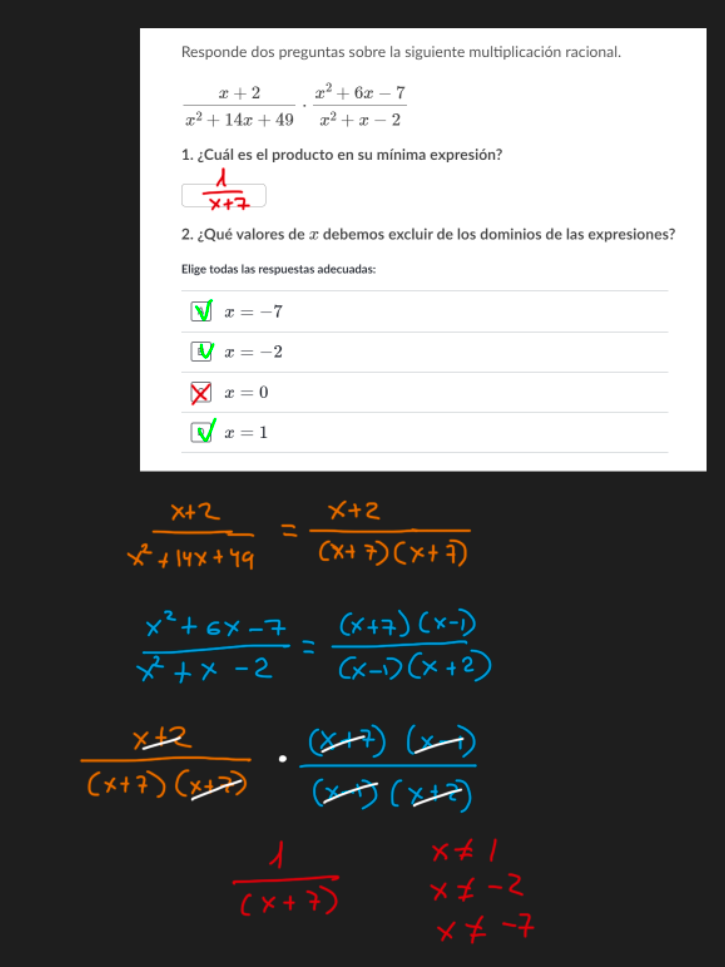 Responde dos preguntas sobre la siguiente multiplicación racional.
x + 2 / x² + 14x + 49 · x² + 6x − 7 / x² + x − 2
1. ¿Cuál es el producto en su mínima expresión?
1 / x+7
2. ¿Qué valores de x debemos excluir de los dominios de las expresiones?
Elige todas las respuestas adecuadas:
x = −7
x = −2
x = 0
x = 1
x+2 / x² + 14x + 49 = x+2 / (x+7)(x+7)
x² + 6x − 7 / x² + x − 2 = (x+7)(x−1) / (x−1)(x+2)
x+2 / (x+7)(x+7) · (x+7)(x−1) / (x−1)(x+2)
1 / (x+7)
x ≠ 1
x ≠ −2
x ≠ −7